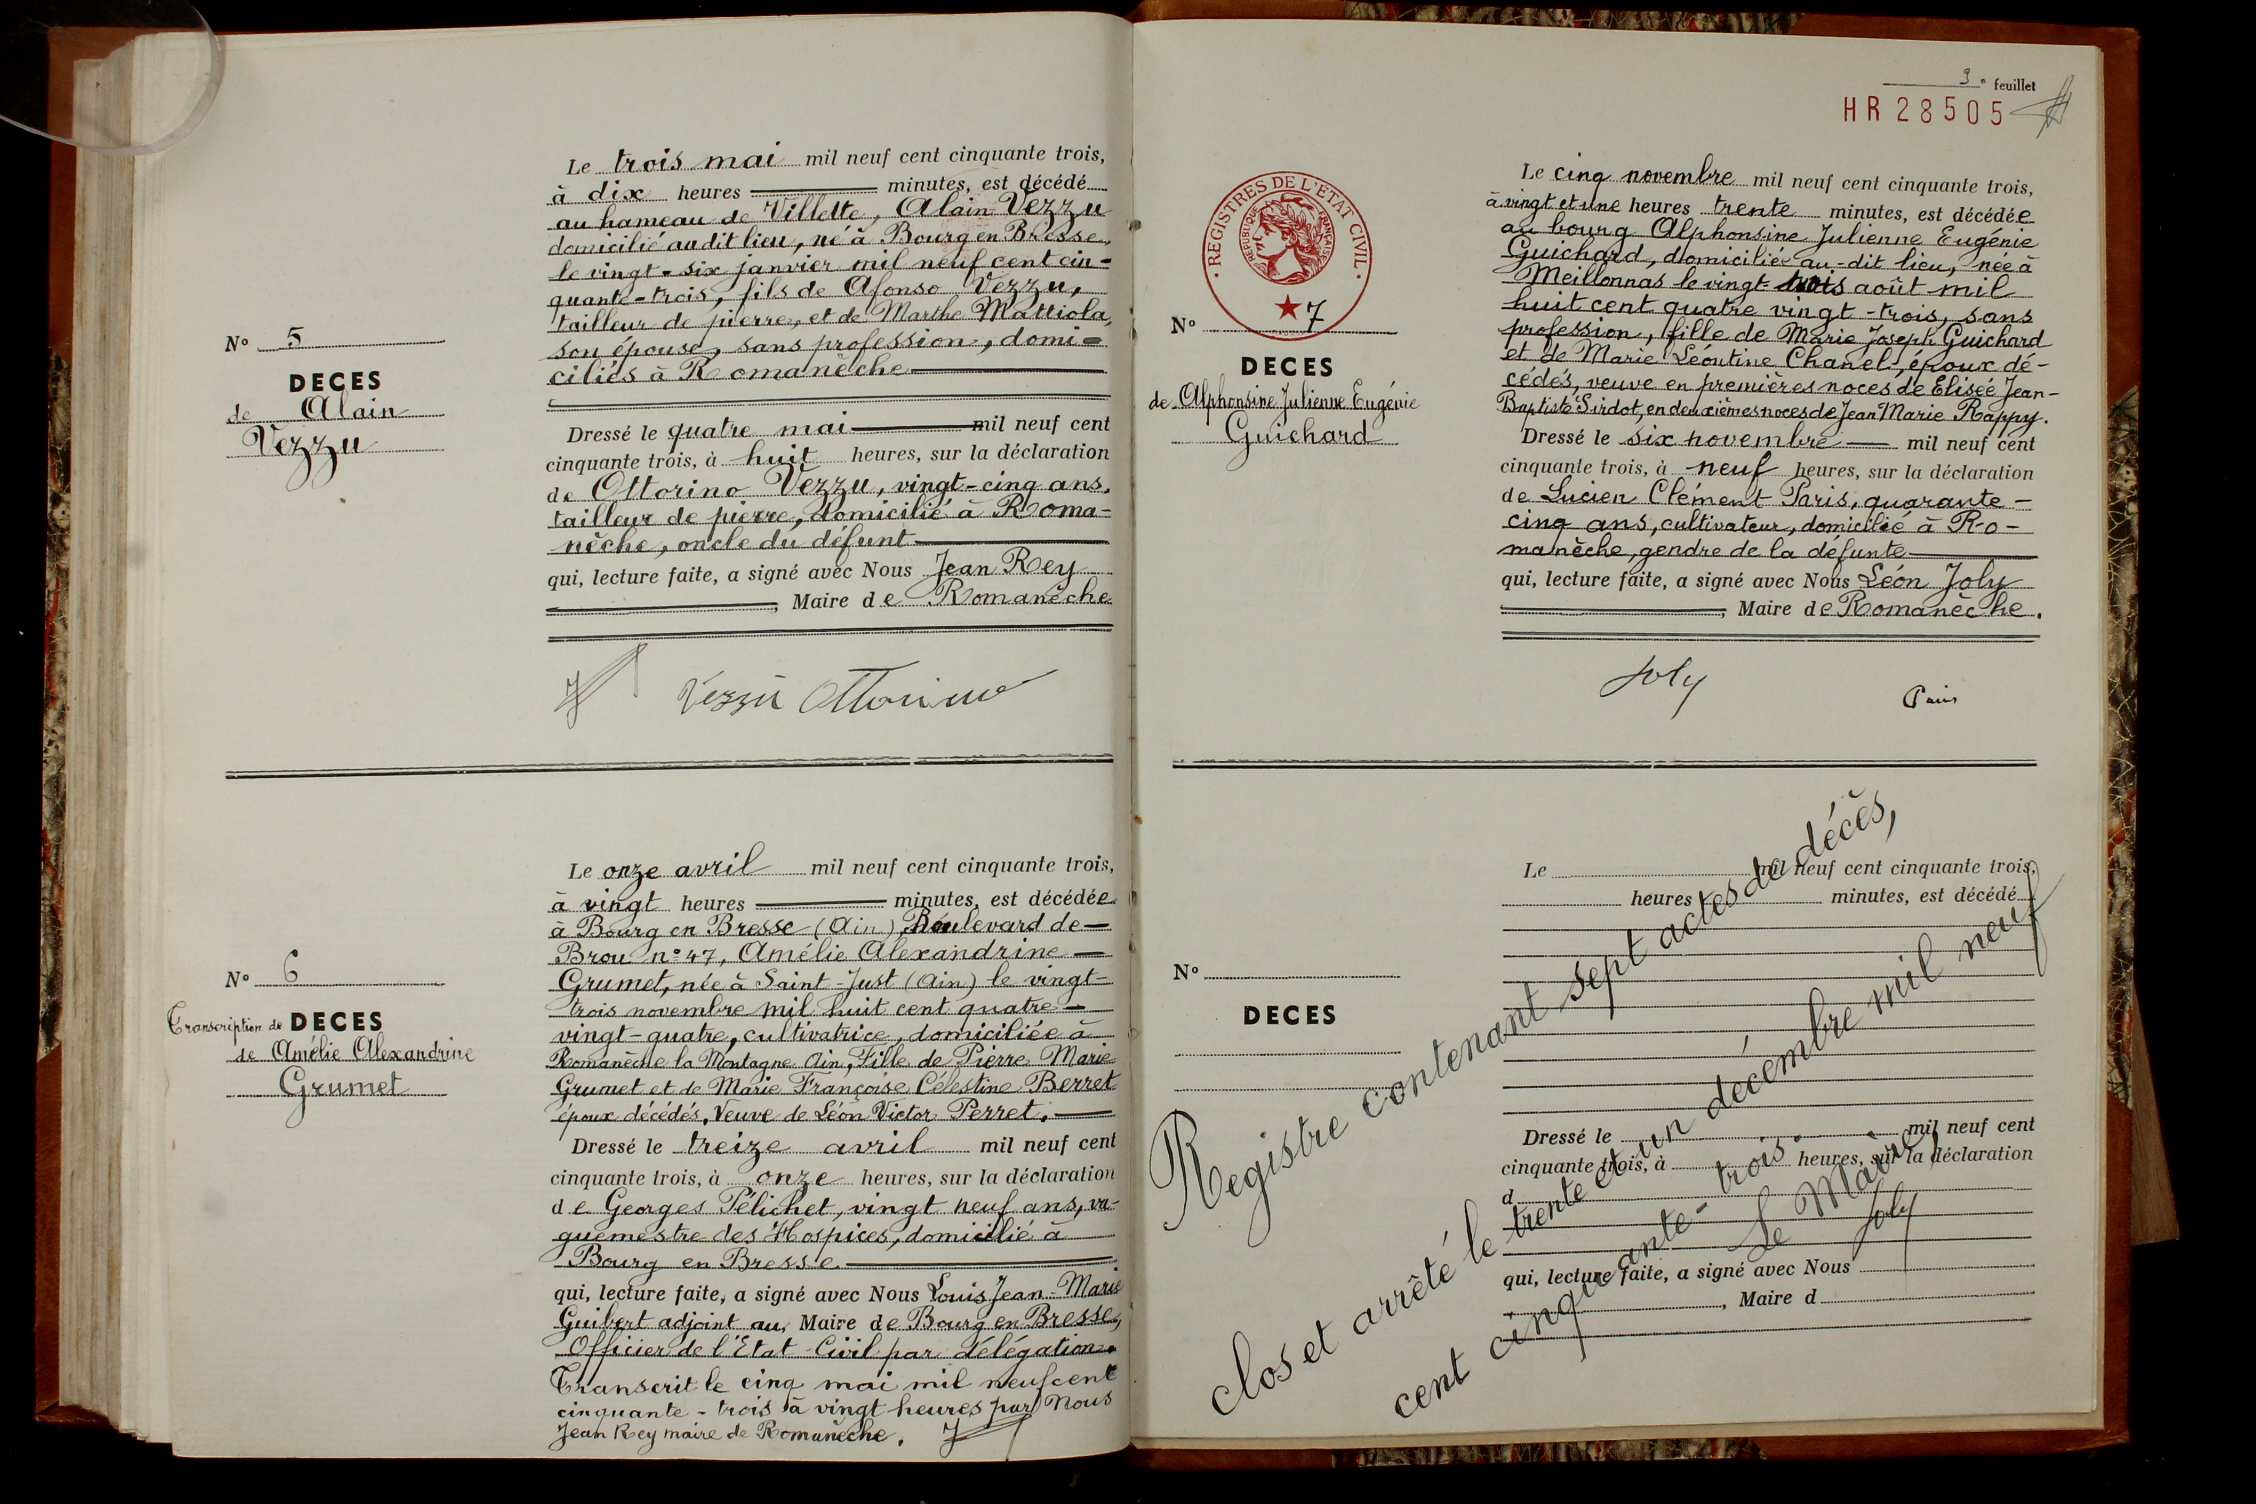 Le trois mai mil neuf cent cinquante trois,
à dix heures minutes, est décédé
au hameau de Villette, Alain Vezzu
domicilié audit lieu, né à Bourg en Bresse
le vingt-six janvier mil neuf cent cin-
quante-trois, fils de Afonso Vezzu,
tailleur de pierre, et de Marthe Mattiola,
son épouse, sans profession, domi-
ciliés à Romanèche
N° 5
DECES
de Alain
Vezzu
Dressé le quatre mai mil neuf cent
cinquante trois, à huit heures, sur la déclaration
de Ottorino Vezzu, vingt-cinq ans,
tailleur de pierre, domicilié à Roma-
nèche, oncle du défunt
qui, lecture faite, a signé avec Nous Jean Rey
, Maire de Romanèche
Vezzu Ottorino
Le onze avril mil neuf cent cinquante trois,
à vingt heures minutes, est décédée
à Bourg en Bresse (Ain), Boulevard de
Brou n° 47, Amélie Alexandrine
Grumet, née à Saint-Just (Ain) le vingt-
trois novembre mil huit cent quatre-
vingt-quatre, cultivatrice, domiciliée à
Romanèche la Montagne Ain, Fille de Pierre Marie
Grumet et de Marie Françoise Célestine Berret
époux décédés. Veuve de Léon Victor Perret.
N° 6
Transcription de DECES
de Amélie Alexandrine
Grumet
Dressé le treize avril mil neuf cent
cinquante trois, à onze heures, sur la déclaration
de Georges Pélichet, vingt neuf ans, va-
guemestre des Hospices, domicilié à
Bourg en Bresse.
qui, lecture faite, a signé avec Nous Louis Jean-Marie
Guibert adjoint au, Maire de Bourg en Bresse,
Officier de l'Etat-Civil par délégation.
Transcrit le cinq mai mil neuf cent
cinquante-trois à vingt heures par Nous
Jean Rey maire de Romanèche.
3e feuillet
HR 28505
REGISTRES DE L'ÉTAT CIVIL
RÉPUBLIQUE FRANÇAISE
Le cinq novembre mil neuf cent cinquante trois,
à vingt et une heures trente minutes, est décédée
au bourg Alphonsine Julienne Eugénie
Guichard, domiciliée au-dit lieu, née à
Meillonnas le vingt-trois août mil
huit cent quatre vingt-trois, sans
profession, fille de Marie Joseph Guichard
et de Marie Léontine Chanel, époux dé-
cédés, veuve en premières noces de Elisée Jean-
Baptiste Sirdot, en deuxièmes noces de Jean Marie Rappy.
N° 7
DECES
de Alphonsine Julienne Eugénie
Guichard
Dressé le six novembre mil neuf cent
cinquante trois, à neuf heures, sur la déclaration
de Lucien Clément Paris, quarante-
cinq ans, cultivateur, domicilié à Ro-
manèche, gendre de la défunte
qui, lecture faite, a signé avec Nous Léon Joly
, Maire de Romanèche.
Joly
Paris
Le mil neuf cent cinquante trois,
heures minutes, est décédé
N°
DECES
Dressé le mil neuf cent
cinquante trois, à heures, sur la déclaration
d
qui, lecture faite, a signé avec Nous
, Maire d
Registre contenant sept actes de décès,
clos et arrêté le trente et un décembre mil neuf
cent cinquante-trois.
Le Maire,
Joly